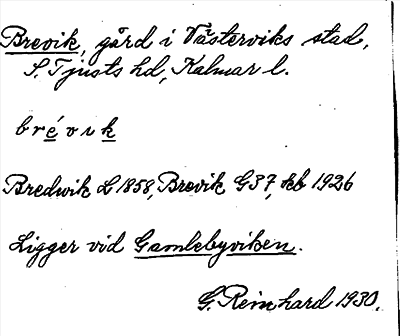 Brevik, gård i Västerviks stad,
S. Tjusts hd, Kalmar l.
brévik
Bredwik L 1858, Brevik G37, kb 1926
Ligger vid Gamlebyviken.
G. Reinhard 1930.